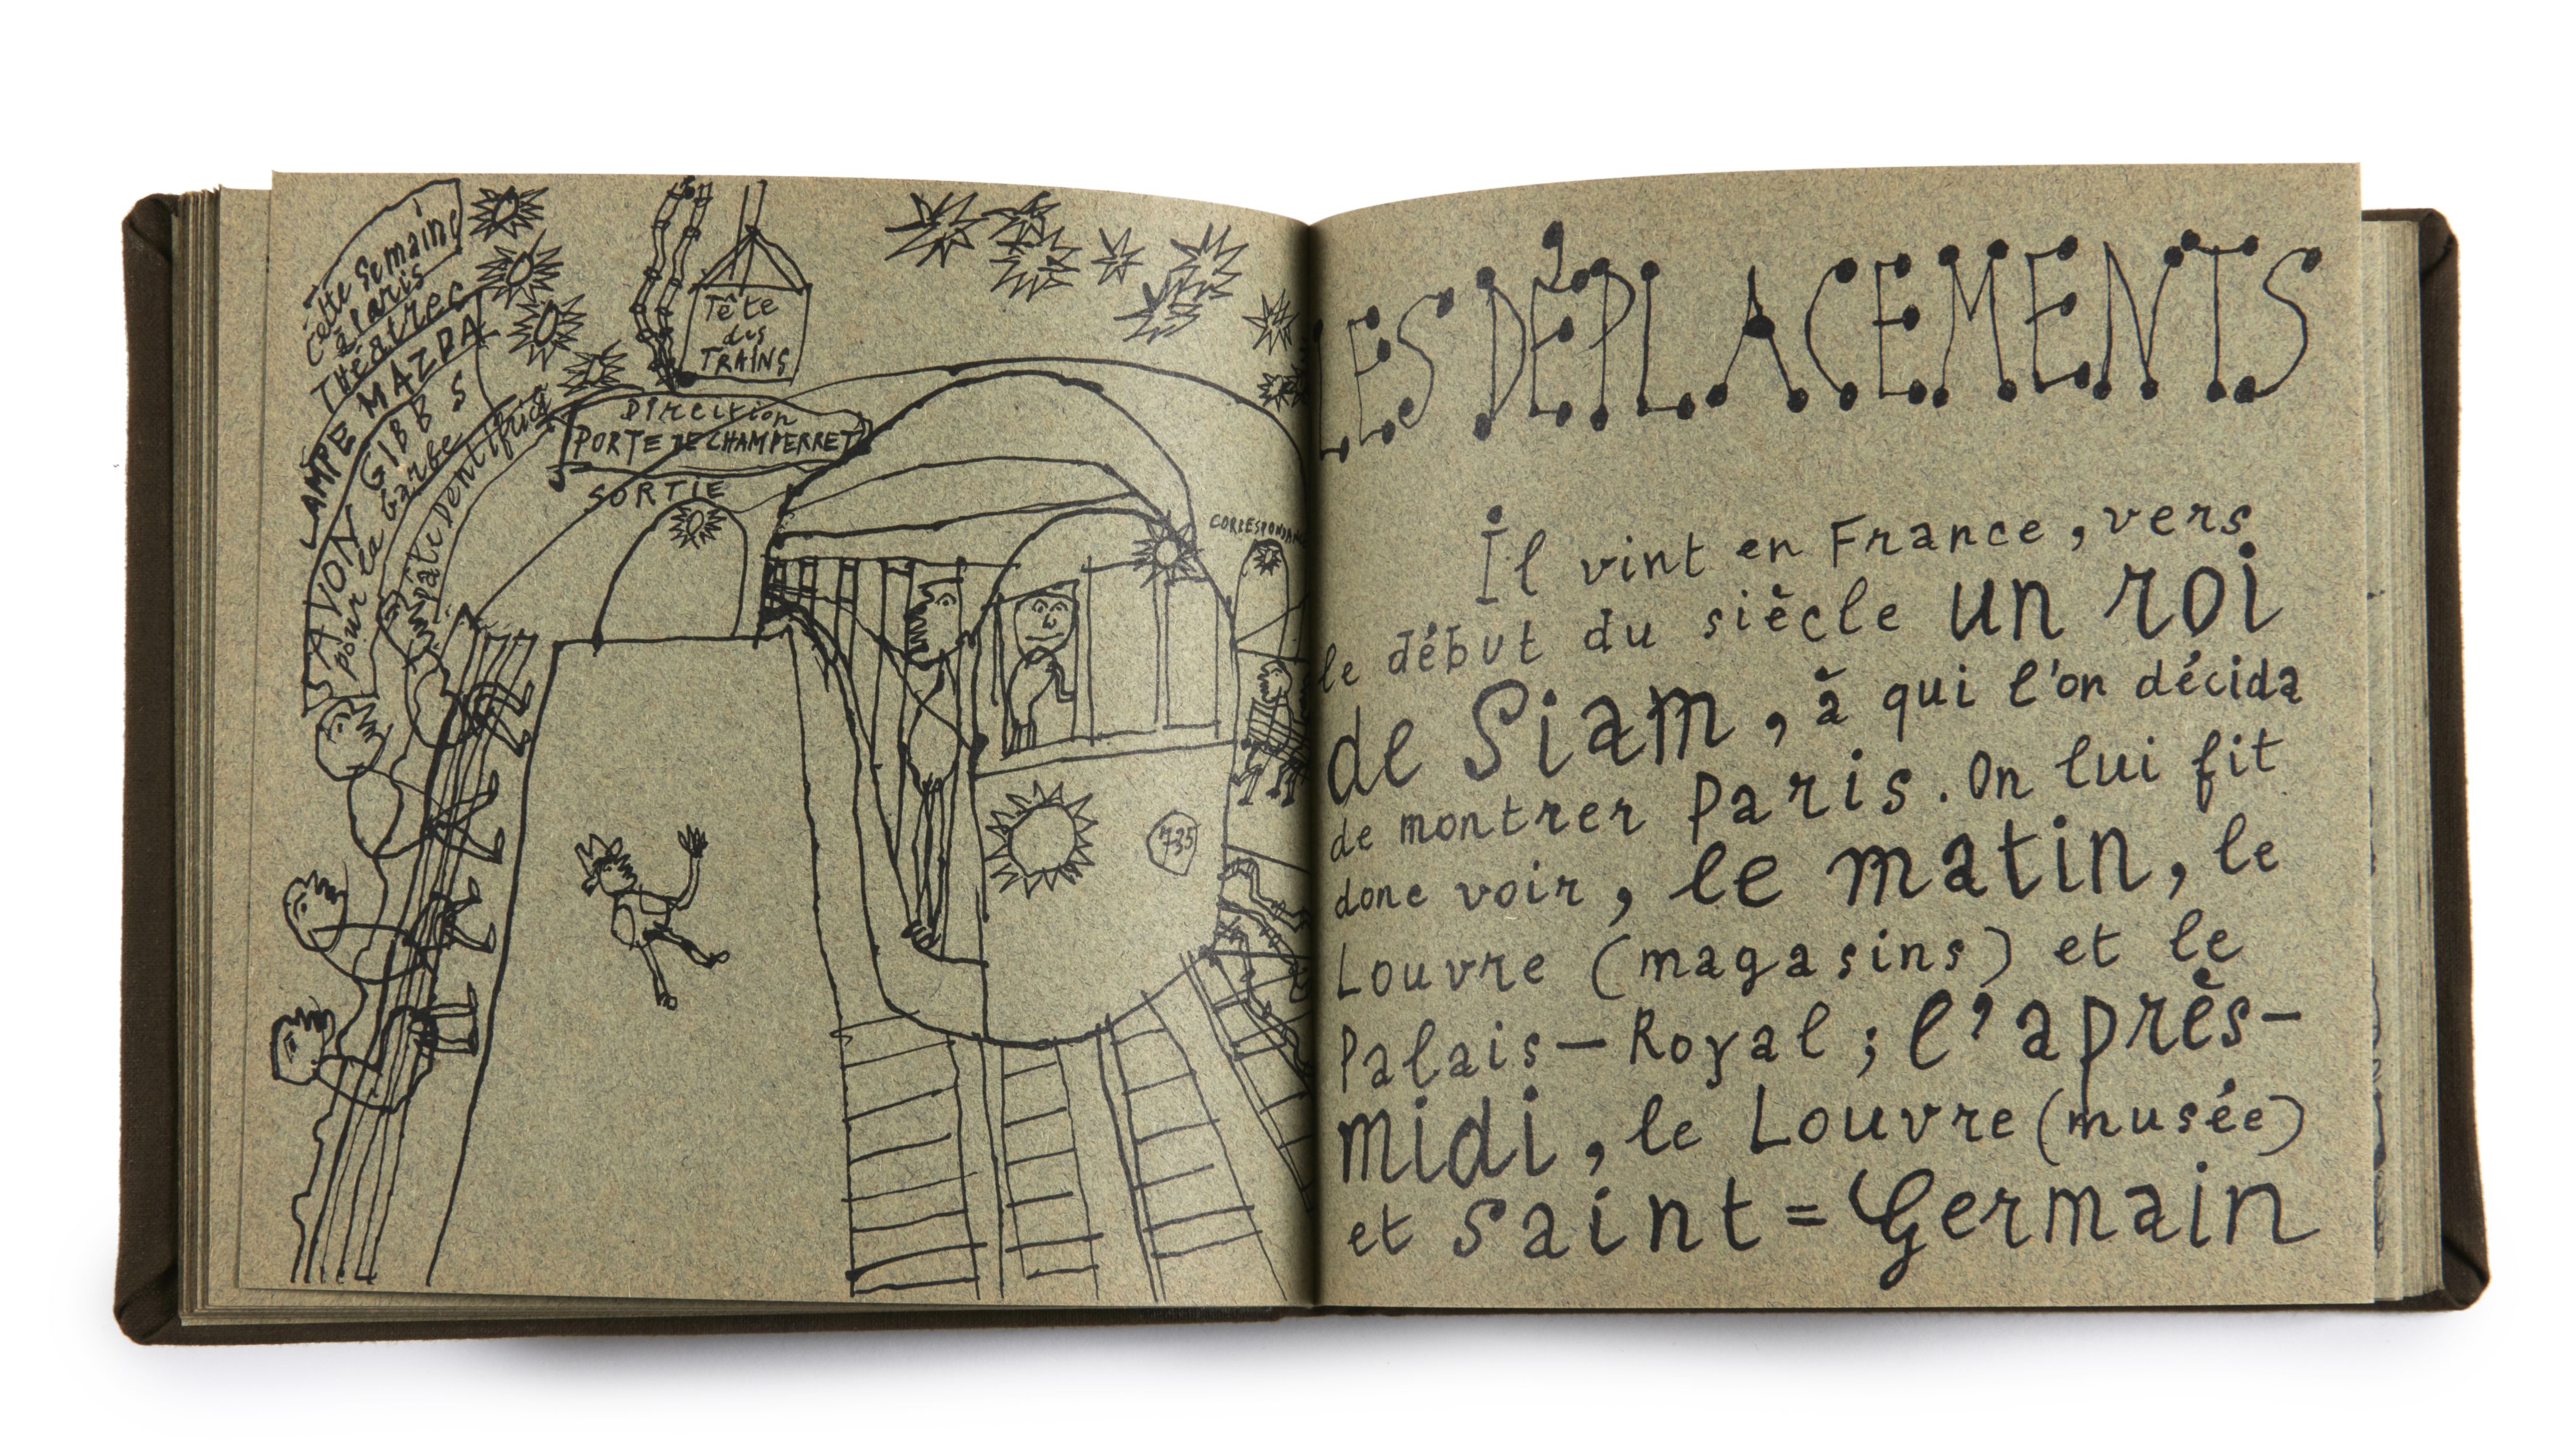 Cette Semaine
à Paris
Théatrec
LAMPE MAZDA
SAVON GIBBS
pour la barbe
pâte Dentifrice
Tête
des
TRAINS
Direction
PORTE DE CHAMPERRET
SORTIE
CORRESPONDANCE
735
LES DÉPLACEMENTS
Il vint en France, vers
le début du siècle un roi
de Siam, à qui l'on décida
de montrer Paris. On lui fit
donc voir, le matin, le
Louvre (magasins) et le
Palais-Royal; l'après-
midi, le Louvre (musée)
et Saint=Germain